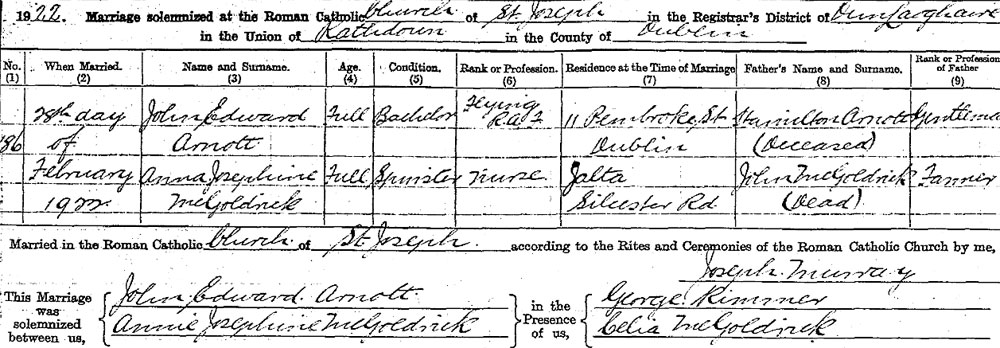 1922. Marriage solemnized at the Roman Catholic Church of St. Joseph in the Registrar's District of Dun Laoghaire
in the Union of Rathdown in the County of Dublin
No. (1) When Married. (2) Name and Surname. (3) Age. (4) Condition. (5) Rank or Profession. (6) Residence at the Time of Marriage (7) Father's Name and Surname. (8) Rank or Profession of Father (9)
28th day John Edward Full Bachelor Flying R.A.F 11 Pembroke St Hamilton Arnott Gentleman
186 of Arnott Dublin (Deceased)
February Anna Josephine Full Spinster Nurse Jalta John McGoldrick Farmer
1922 McGoldrick Silcester Rd (Dead)
Married in the Roman Catholic Church of St. Joseph. according to the Rites and Ceremonies of the Roman Catholic Church by me,
Joseph Murray
This Marriage was solemnized between us, John Edward Arnott in the Presence of us, George Rimmer
Annie Josephine McGoldrick Celia McGoldrick